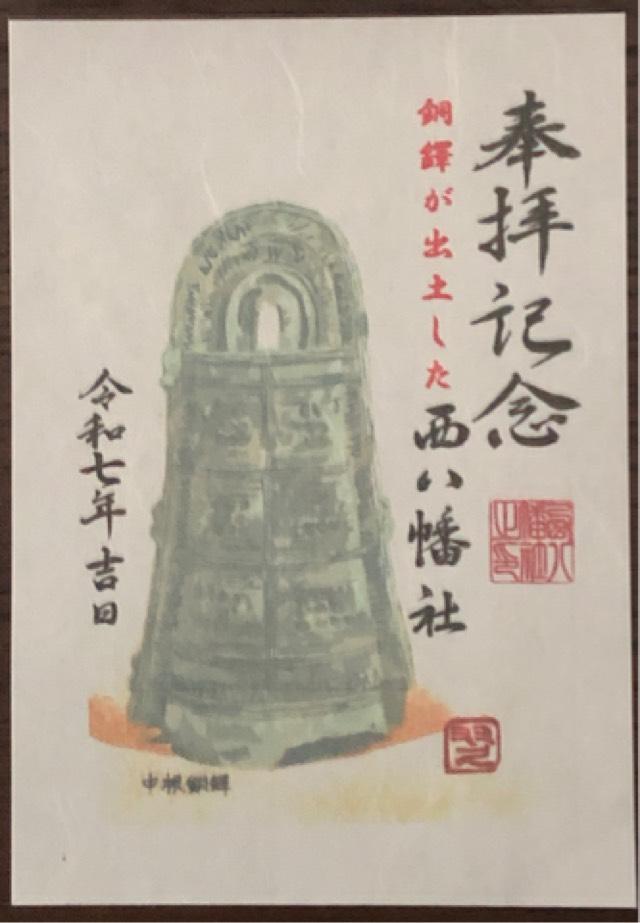 奉拝記念
銅鐸が出土した
西八幡社
令和七年吉日
中根銅鐸